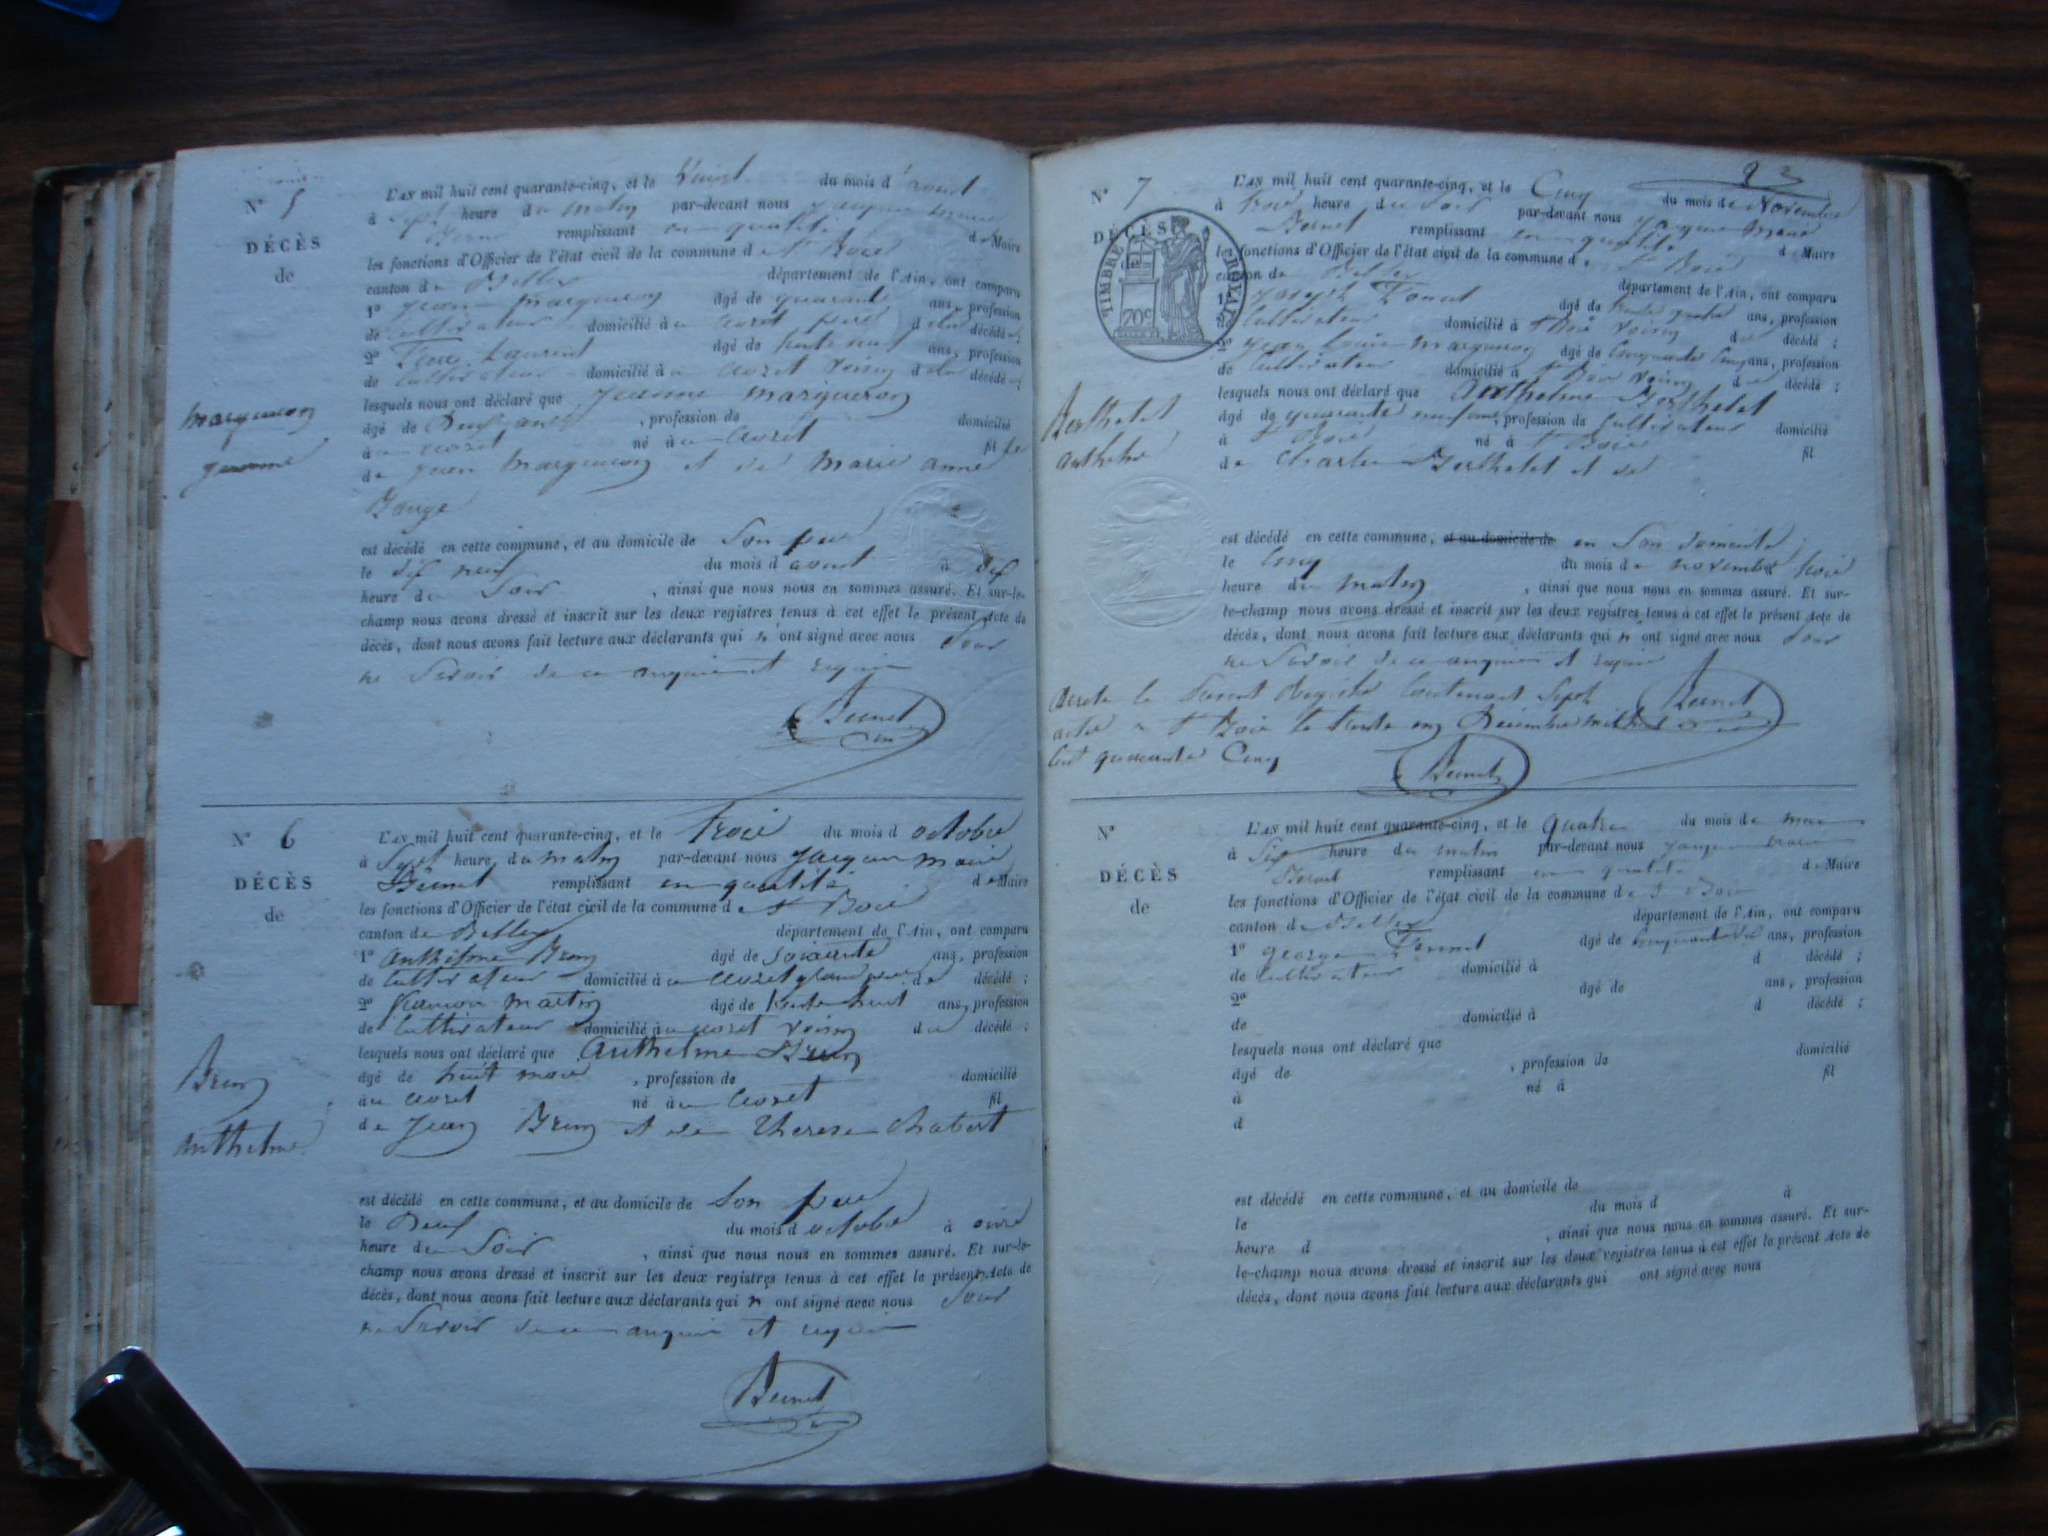 N° 5
DÉCÈS
de
Margueron
jeanne
L'AN mil huit cent quarante-cinq, et le Vingt du mois d'aout
à sept heure du matin par-devant nous jacques marie
Bernet remplissant en qualité de Maire
les fonctions d'Officier de l'état civil de la commune de St Bois
canton de Belley département de l'Ain, ont comparu
1° jean margueron âgé de quarante ans, profession
de cultivateur domicilié à père de la décédée;
2° Laurent âgé de trente neuf ans, profession
de cultivateur domicilié à voisin de la décédée;
lesquels nous ont déclaré que jeanne margueron
âgé de Deux ans, profession de domicilié
à né à fille
de jean Margueron et de Marie anne
est décédé en cette commune, et au domicile de Son père
le dix neuf du mois d'aout à dix
heure du Soir, ainsi que nous nous en sommes assuré. Et sur-le-
champ nous avons dressé et inscrit sur les deux registres tenus à cet effet le présent Acte de
décès, dont nous avons fait lecture aux déclarants qui n'ont signé avec nous pour
ne Savoir de ce enquis et requis
Bernet
N° 6
DÉCÈS
de
Brun
Anthelme
L'AN mil huit cent quarante-cinq, et le Trois du mois d octobre
à Sept heure du matin par-devant nous jacques marie
Bernet remplissant en qualité de Maire
les fonctions d'Officier de l'état civil de la commune de St Bois
canton de Belley département de l'Ain, ont comparu
1° Anthelme Brun âgé de soixante ans, profession
de cultivateur domicilié à grand père de décédé;
2° françois martin âgé de trente huit ans, profession
de cultivateur domicilié à voisin du décédé;
lesquels nous ont déclaré que Anthelme Brun
âgé de huit mois, profession de domicilié
à né à fil
de jean Brun et de Therese Chabert
est décédé en cette commune, et au domicile de Son père
le Deux du mois d octobre à onze
heure du Soir, ainsi que nous nous en sommes assuré. Et sur-le-
champ nous avons dressé et inscrit sur les deux registres tenus à cet effet le présent Acte de
décès, dont nous avons fait lecture aux déclarants qui n ont signé avec nous pour
ne Savoir de ce enquis et requis
Bernet
23
N° 7
DÉCÈS
TIMBRE ROYAL
70c
Berthelet
anthelme
L'AN mil huit cent quarante-cinq, et le Cinq du mois de Novembre
à trois heure du Soir par-devant nous jacques marie
Bernet remplissant en qualité de Maire
les fonctions d'Officier de l'état civil de la commune de St Bois
canton de Belley département de l'Ain, ont comparu
1° joseph âgé de trente quatre ans, profession
de Cultivateur domicilié à St Bois voisin du décédé;
2° jean Louis Margueron âgé de Cinquante Cinq ans, profession
de Cultivateur domicilié à St Bois voisin du décédé;
lesquels nous ont déclaré que Anthelme Berthelet
âgé de quarante neuf ans, profession de Cultivateur domicilié
à St Bois né à St Bois fil
de Charles Berthelet et de
est décédé en cette commune, et au domicile de en Son domicile
le Cinq du mois de novembre trois
heure du matin, ainsi que nous nous en sommes assuré. Et sur-
le-champ nous avons dressé et inscrit sur les deux registres tenus à cet effet le présent Acte de
décès, dont nous avons fait lecture aux déclarants qui n ont signé avec nous pour
ne Savoir de ce enquis et requis
Bernet
le present Registre Contenant Sept
actes à St Bois le trente un Décembre mil huit
Cent quarante Cinq
Bernet
N°
DÉCÈS
de
L'AN mil huit cent quarante-cinq, et le quatre du mois de
à Six heure du matin par-devant nous jacques marie
Bernet remplissant en qualité de Maire
les fonctions d'Officier de l'état civil de la commune de St Bois
canton de Belley département de l'Ain, ont comparu
1° george âgé de ans, profession
de Cultivateur domicilié à d décédé;
2° âgé de ans, profession
de domicilié à d décédé;
lesquels nous ont déclaré que
âgé de, profession de domicilié
à né à fil
d
est décédé en cette commune, et au domicile de
le du mois d à
heure d, ainsi que nous nous en sommes assuré. Et sur-
le-champ nous avons dressé et inscrit sur les deux registres tenus à cet effet le présent Acte de
décès, dont nous avons fait lecture aux déclarants qui ont signé avec nous